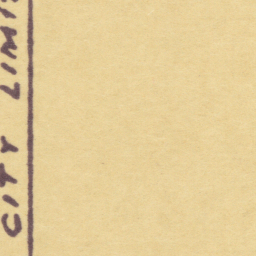 CITY LIMI